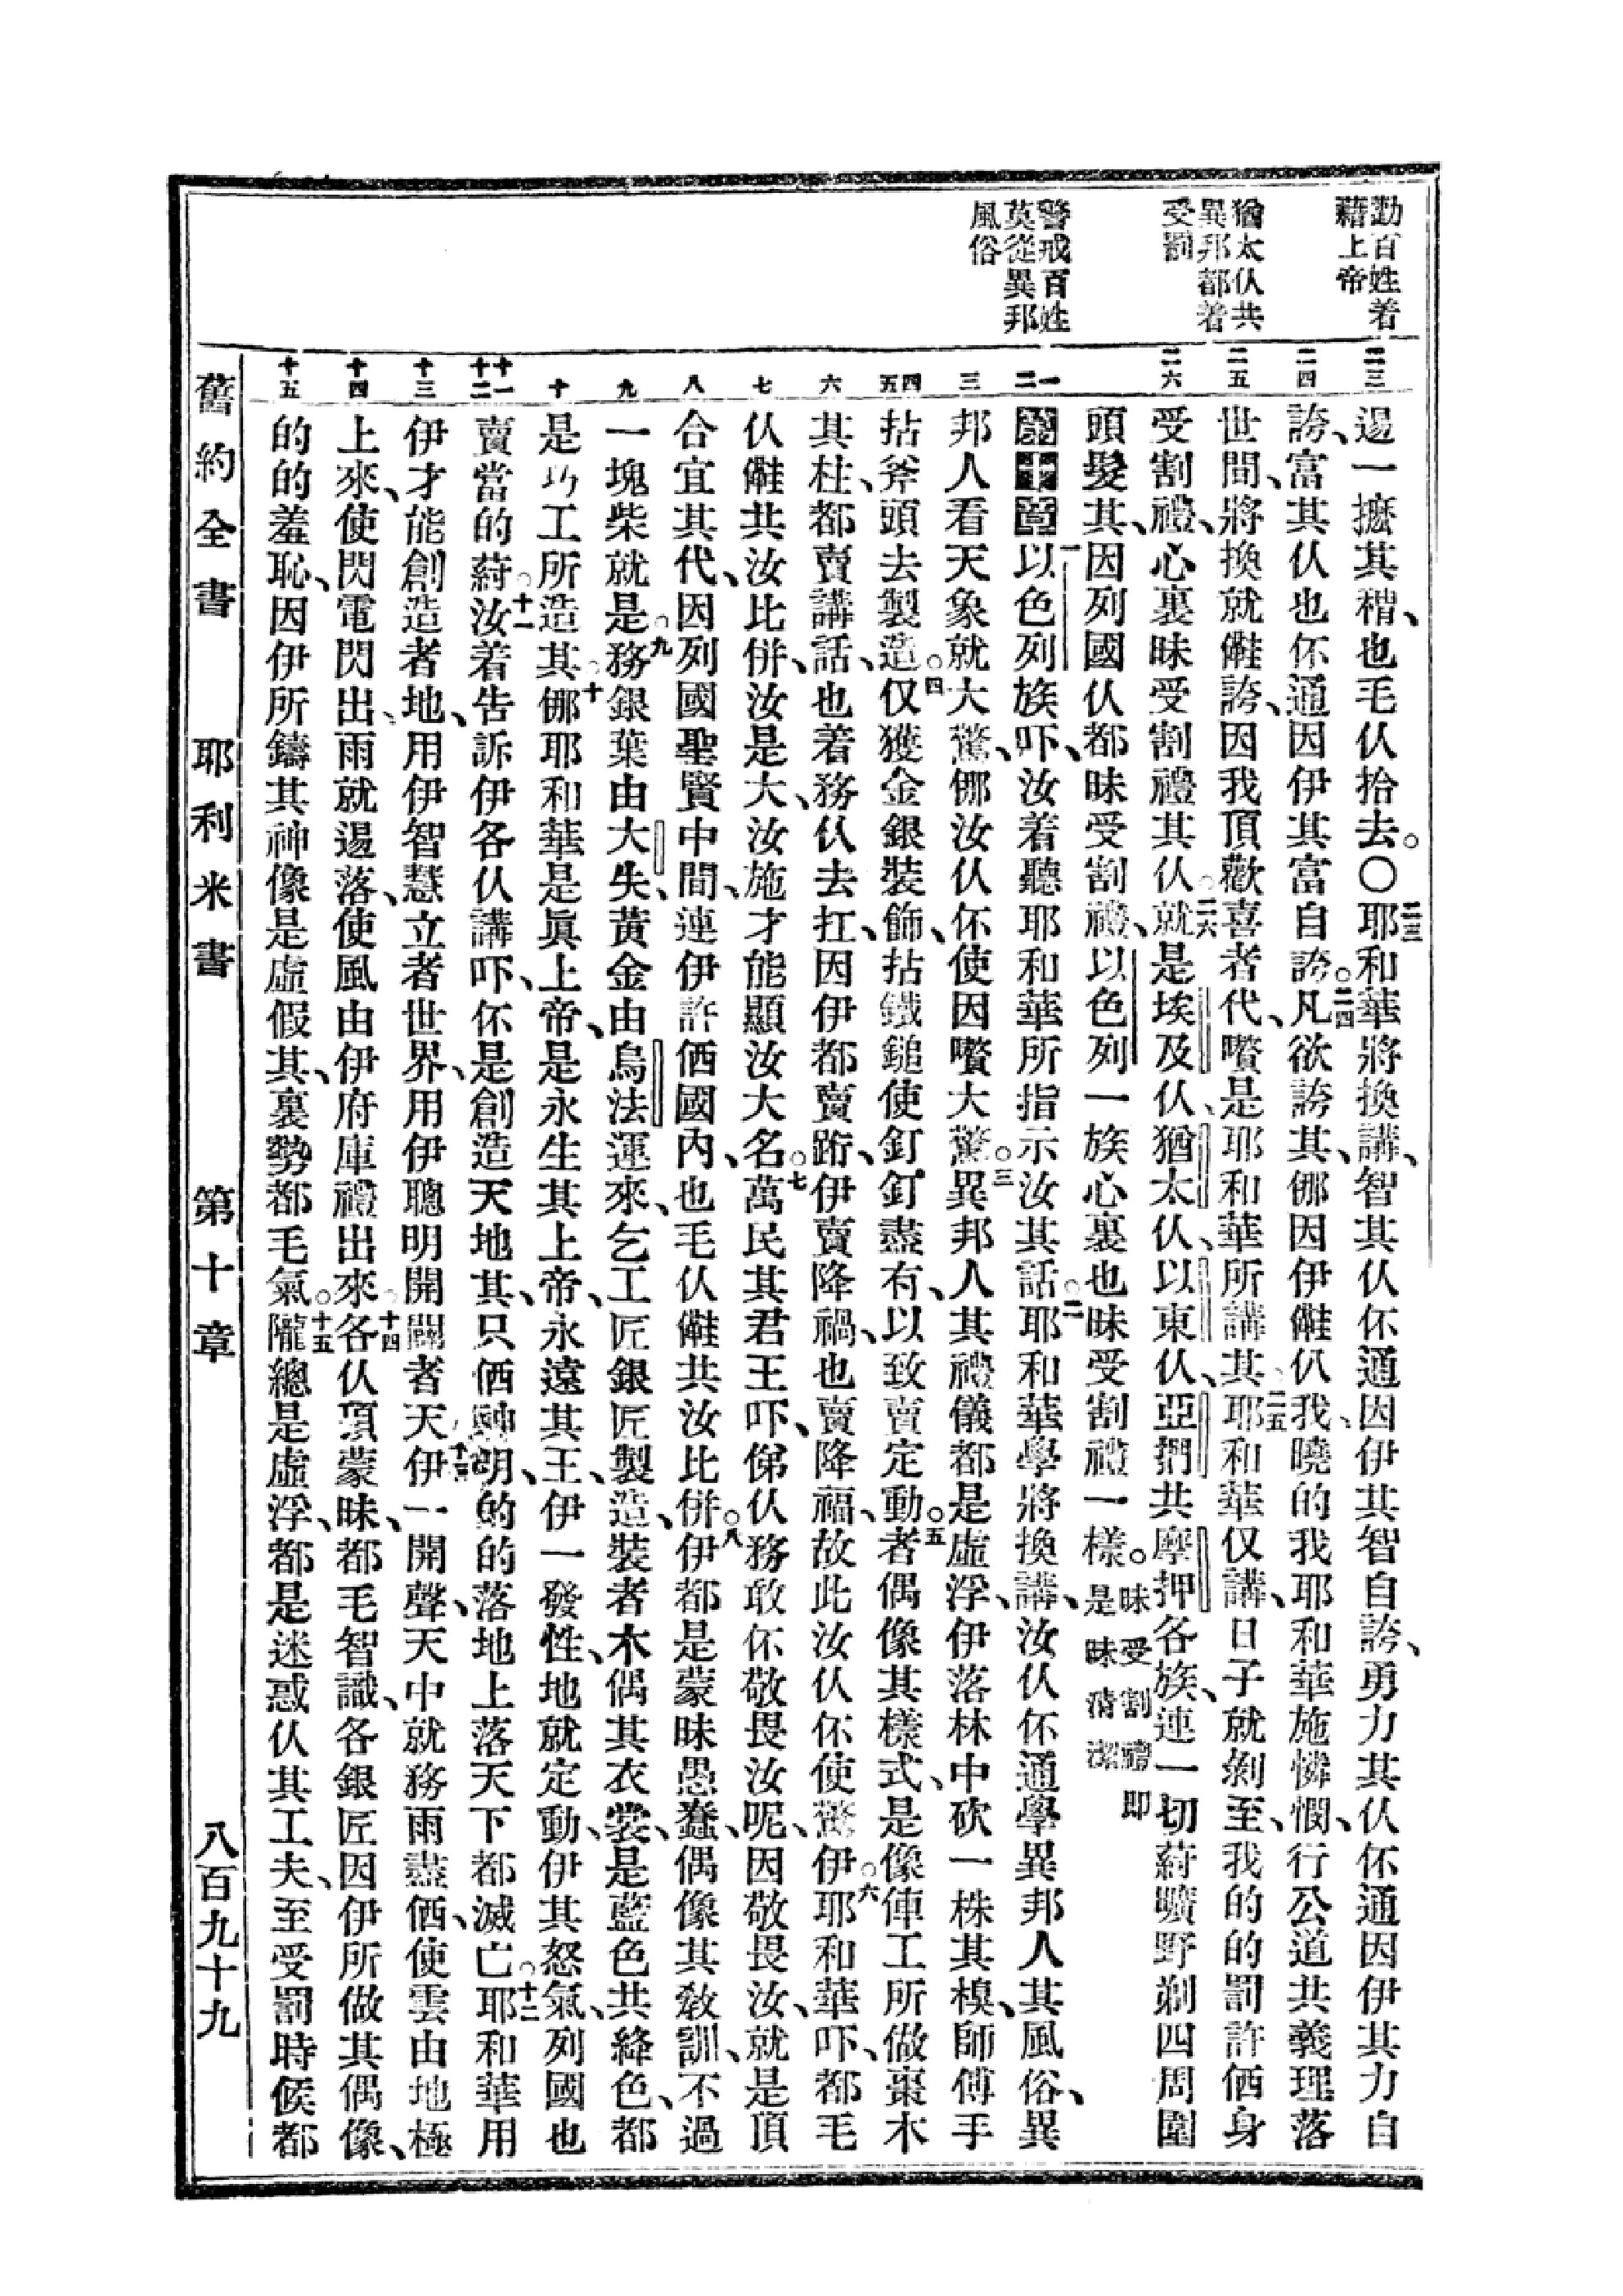 勸百姓着
藉上帝
猶太仈共
異邦都着
受罰
警戒百姓
莫從異邦
風俗
二三
二四
二五
二六
一
二
三
四
五
六
七
八
九
十
十一
十二
十三
十四
十五
逿一摭其穳、也毛仈拾去。〇二三耶和華將換講、智其仈伓通因伊其智自誇、勇力其仈伓通因伊其力自
誇、富其仈也伓通因伊其富自誇。二四凡欲誇其、㑚因伊㒕仈我、曉的我耶和華施憐憫、行公道共義理落
世間、將換就㒕誇、因我頂歡喜者代、嚽是耶和華所講其。二五耶和華仅講、日子就剝至、我的的罰許伵身
受割禮、心裏昧受割禮其仈。二六就是埃及仈、猶太仈、以東仈、亞捫共摩押各族、連一切蒪曠野剃四周圍
頭髮其、因列國仈都昧受割禮、以色列一族心裏也昧受割禮一樣。昧受割禮即是昧清潔
第十章一以色列族吓、汝着聽耶和華所指示汝其話。二耶和華學將換講、汝仈伓通學異邦人其風俗、異
邦人看天象就大驚、㑚汝仈伓使因嚽大驚。三異邦人其禮儀都是虛浮、伊落林中砍一株其樹、師傅手
拈斧頭去製造。四仅獲金銀裝飾、拈鐵鎚使釘釘盡有、以致賣定動。五者偶像其樣式、是像俥工所做棗木
其柱、都賣講話、也着務仈去扛、因伊都賣跕、伊賣降禍、也賣降福、故此汝仈伓使驚伊。六耶和華吓、都毛
仈㒕共汝比併、汝是大、汝施才能顯汝大名。七萬民其君王吓、俤仈務敢伓敬畏汝呢、因敬畏汝、就是頂
合宜其代、因列國聖賢中間、連伊許伵國內、也毛仈㒕共汝比併。八伊都是蒙昧愚蠢、偶像其教訓、不過
一塊柴就是。九務銀葉由大失、黃金由烏法運來、乞工匠銀匠製造、裝者木偶其衣裳、是藍色共絳色、都
是巧工所造其。十㑚耶和華是眞上帝、是永生其上帝、永遠其王、伊一發性、地就定動、伊其怒氣、列國也
賣當的蒪。十一汝着告訴伊各仈講吓、伓是創造天地其、只伵神明、的的落地上落天下都滅亡。十二耶和華用
伊才能創造者地、用伊智慧立者世界、用伊聰明開闢者天。十三伊一開聲、天中就務雨盡伵、使雲由地極
上來、使閃電閃出、雨就逿落、使風由伊府庫禮出來。十四各仈項蒙昧、都毛智識、各銀匠因伊所做其偶像、
的的羞恥、因伊所鑄其神像是虛假其、裏勢都毛氣。十五隴總是虛浮、都是迷惑仈其工夫、至受罰時候都
舊約全書 耶利米書 第十章 八百九十九